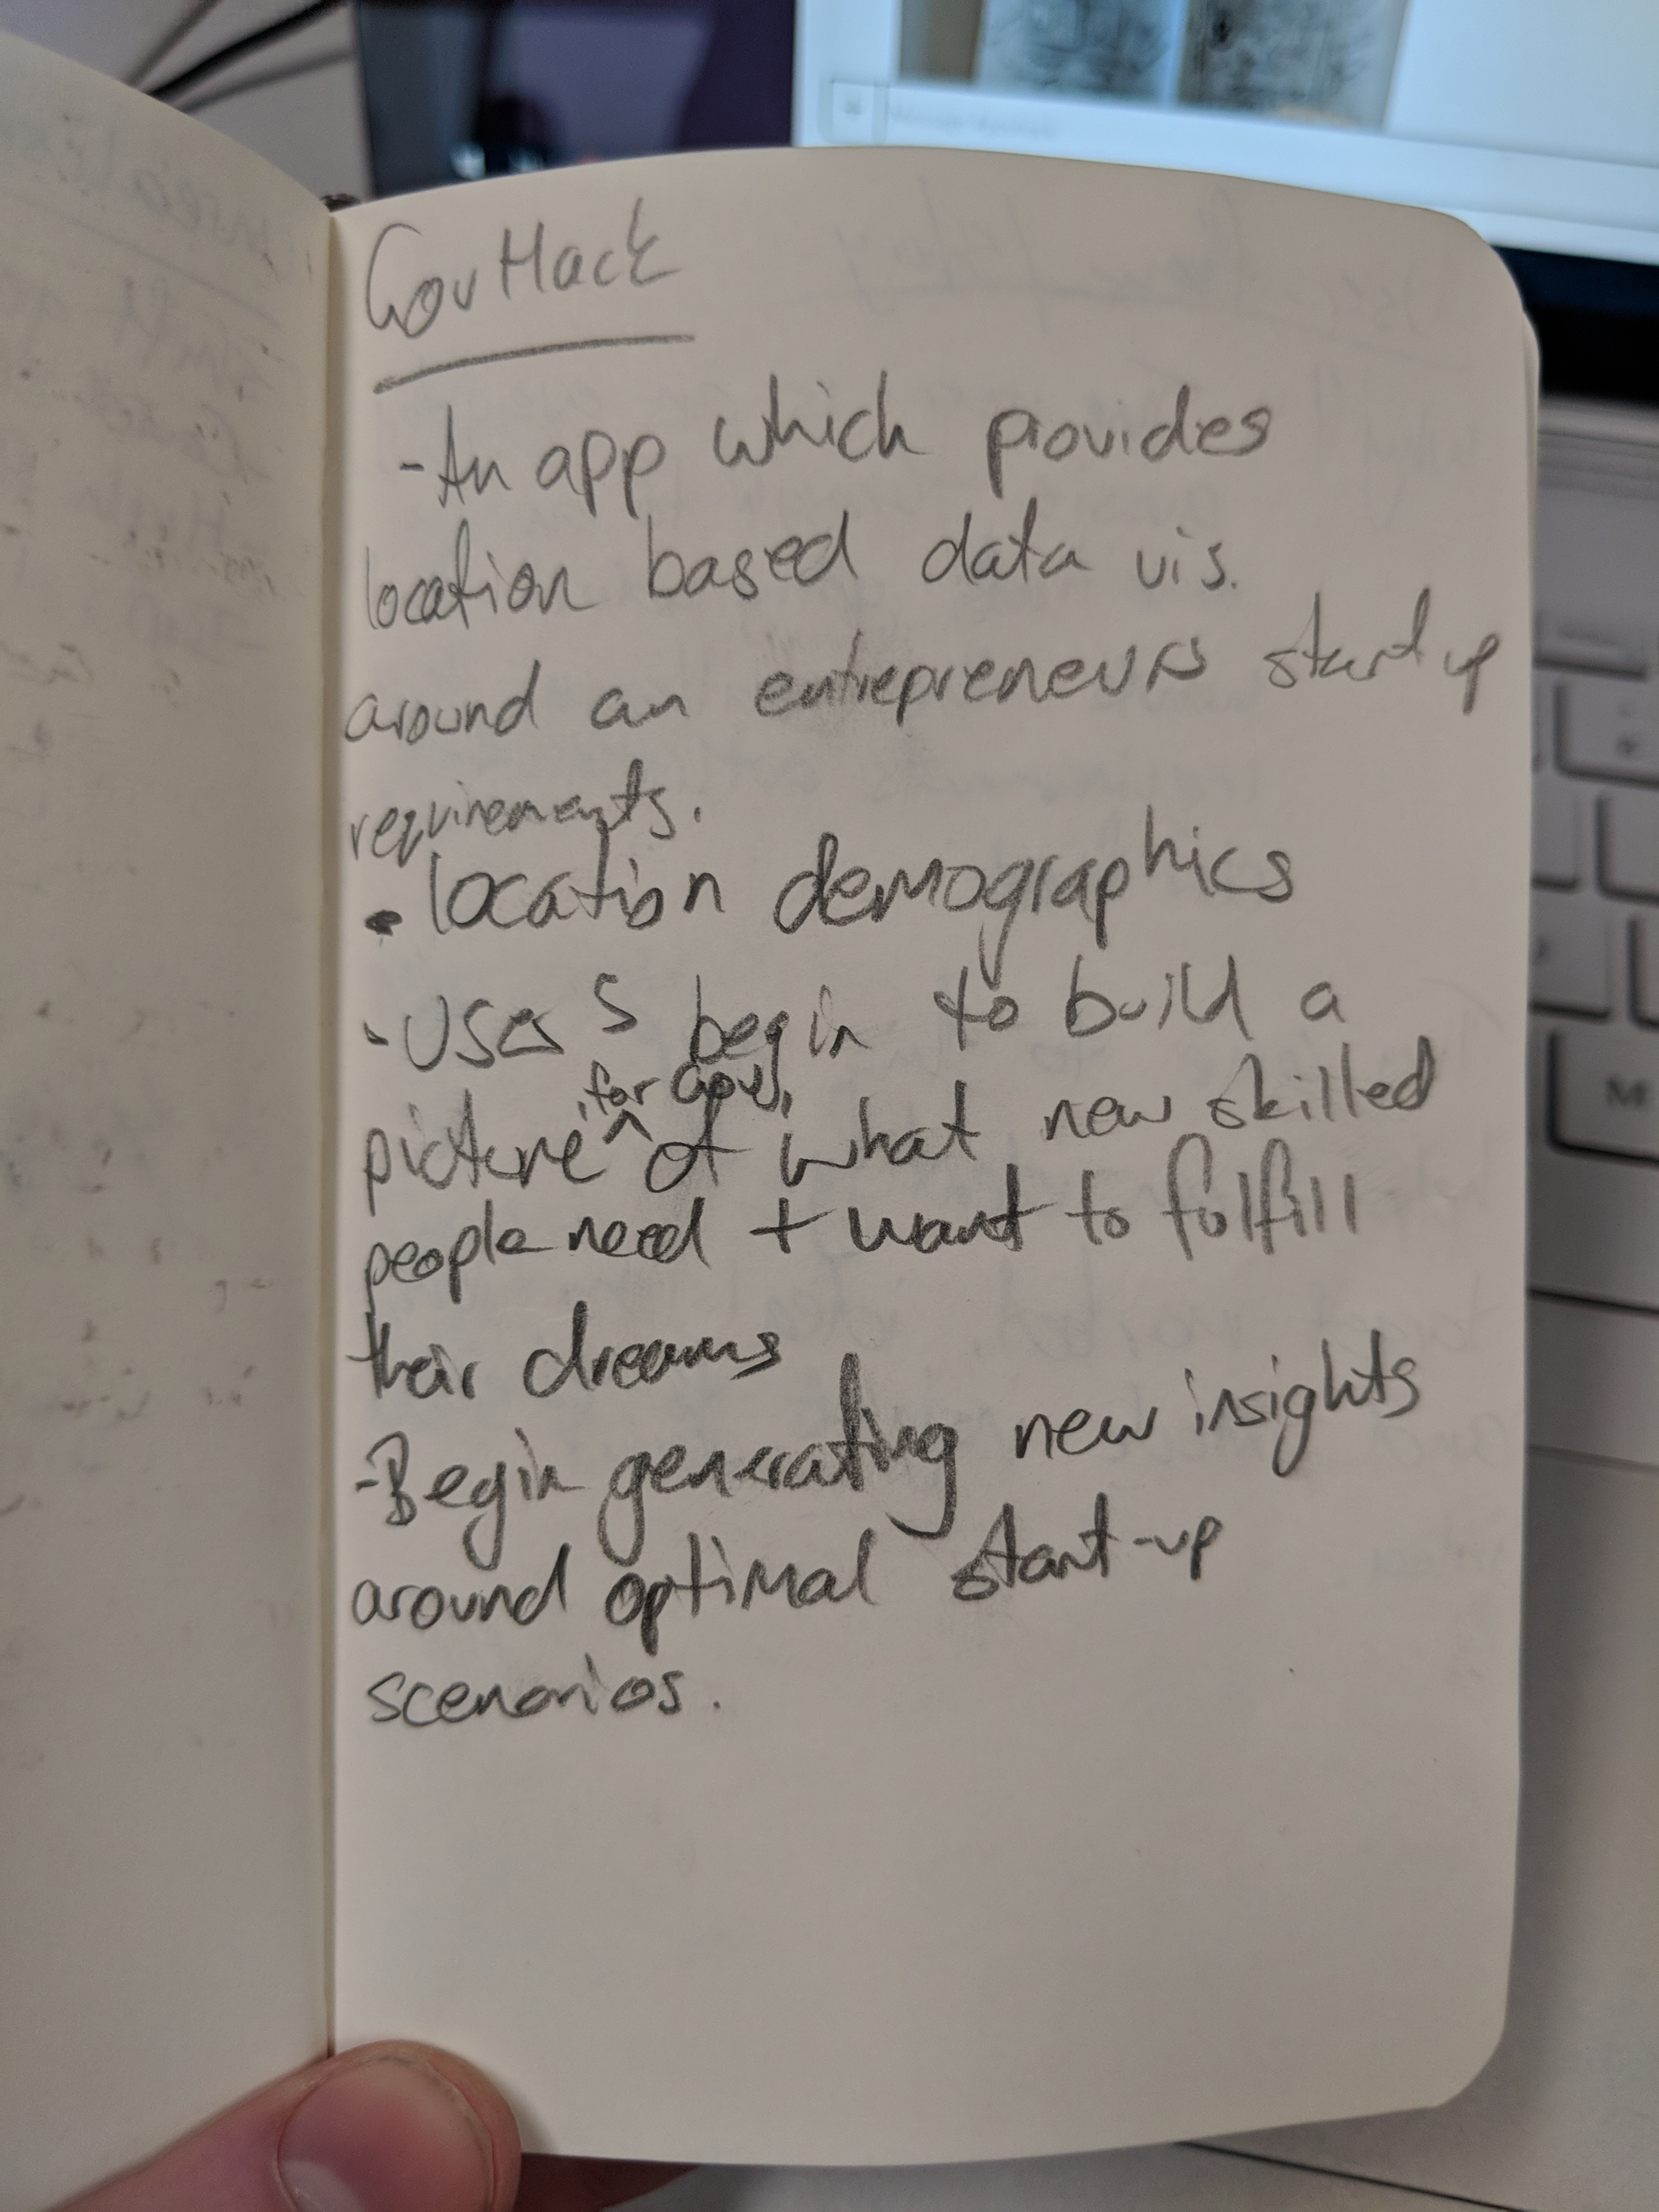 GovHack
- An app which provides
location based data vis.
around an entrepreneurs start up
requirements.
• location demographics
- Users begin to build a
picture ^ for Gov, of what new skilled
people need + want to fulfill
their dreams
- Begin generating new insights
around optimal start-up
scenarios.
M